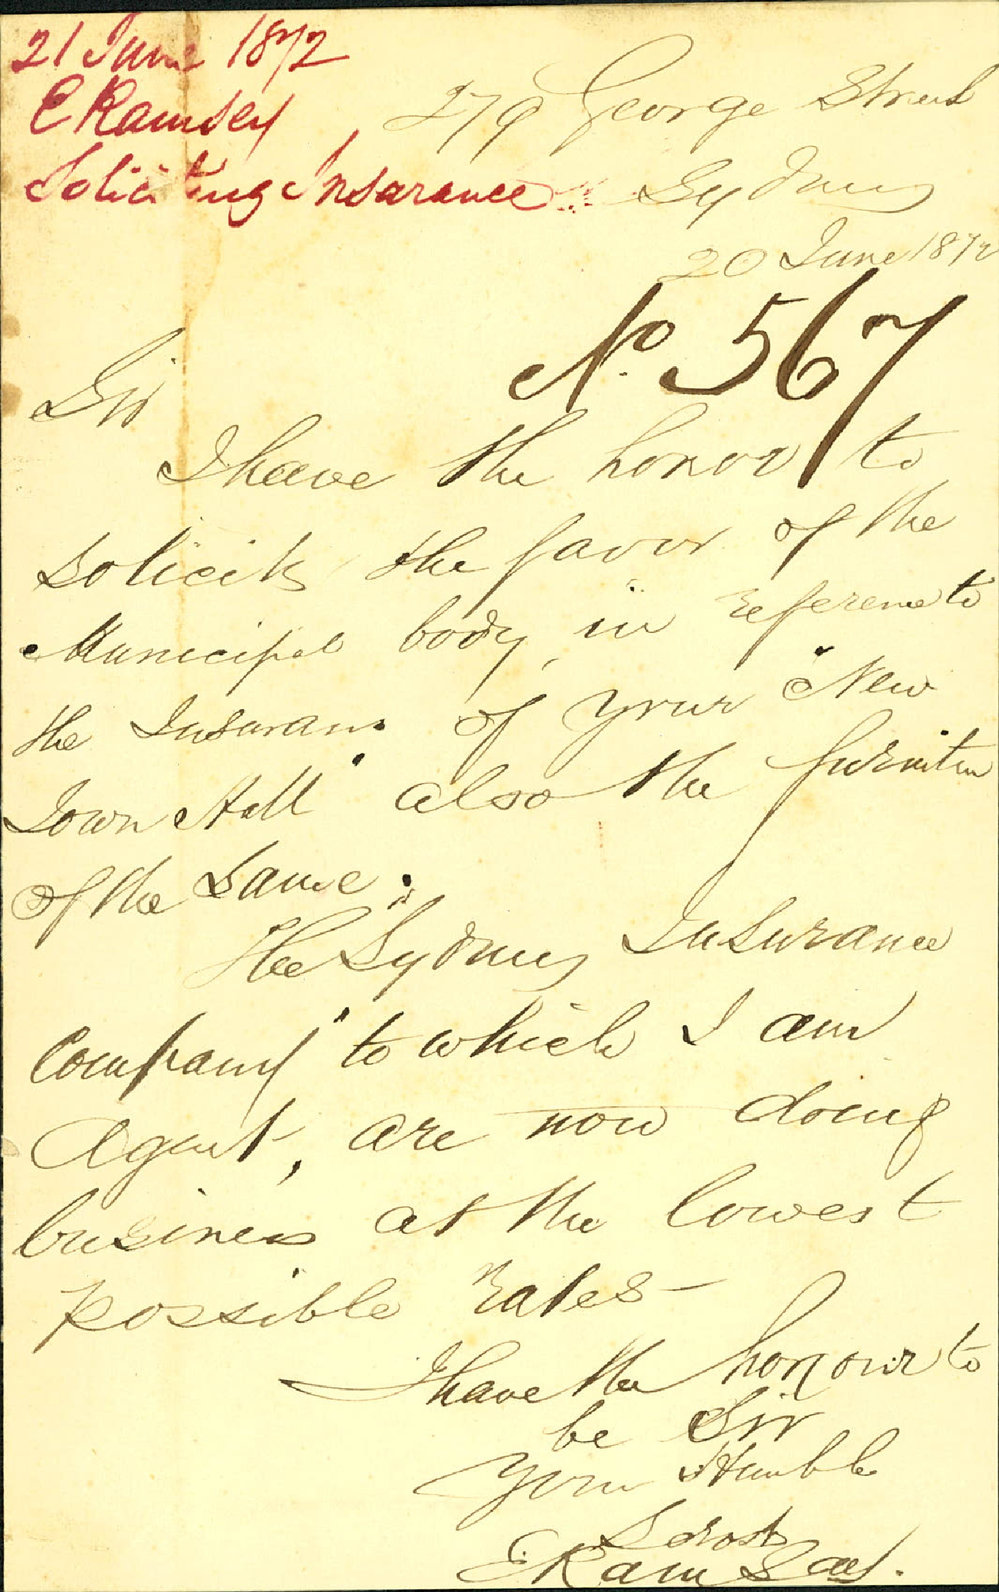 21 June 1872
E Ramsey
Soliciting Insurance
279 George Street
Sydney
20 June 1872
No. 567
Sir
I have the honor to
solicit the favor of the
Municipal body, in reference to
the Insuranc of your "New
Town Hall" also the furniture
of the same.
The Sydney Insurance
Company" to which I am
Agent, are now doing
business at the lowest
possible rates—
I have the honour to
be Sir
Your Humble
Servt
E. Ramsay.